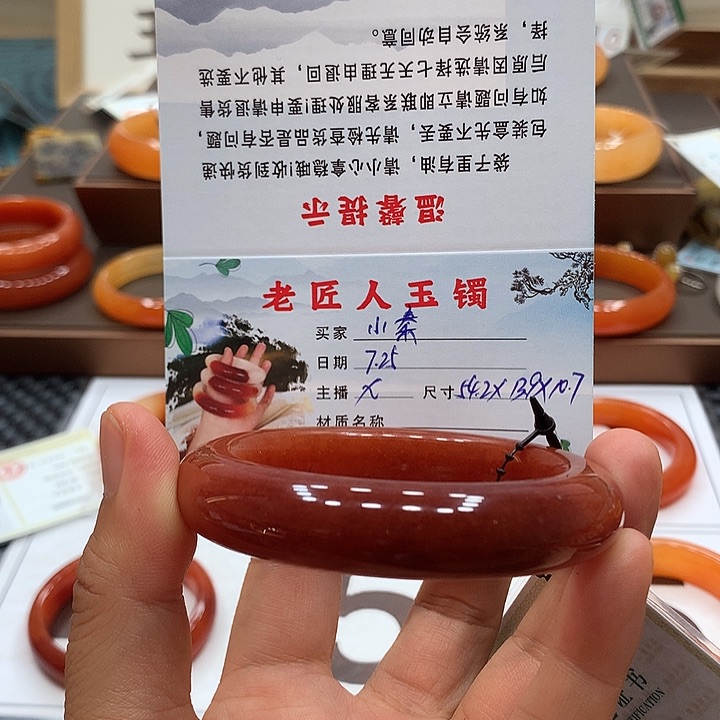 温馨提示
袋子里有油，请小心拿稳哦!收到货快递
包装盒先不要丢，请先检查货品是否有问题，
如有问题请立即联系客服处理!要申请退货售
后原因请选择七天无理由退回，其他不要选
择，系统会自动同意。
老匠人玉镯
买家 小秦
日期 7.25
主播 X 尺寸 54.2X13.9X10.7
材质名称
证书